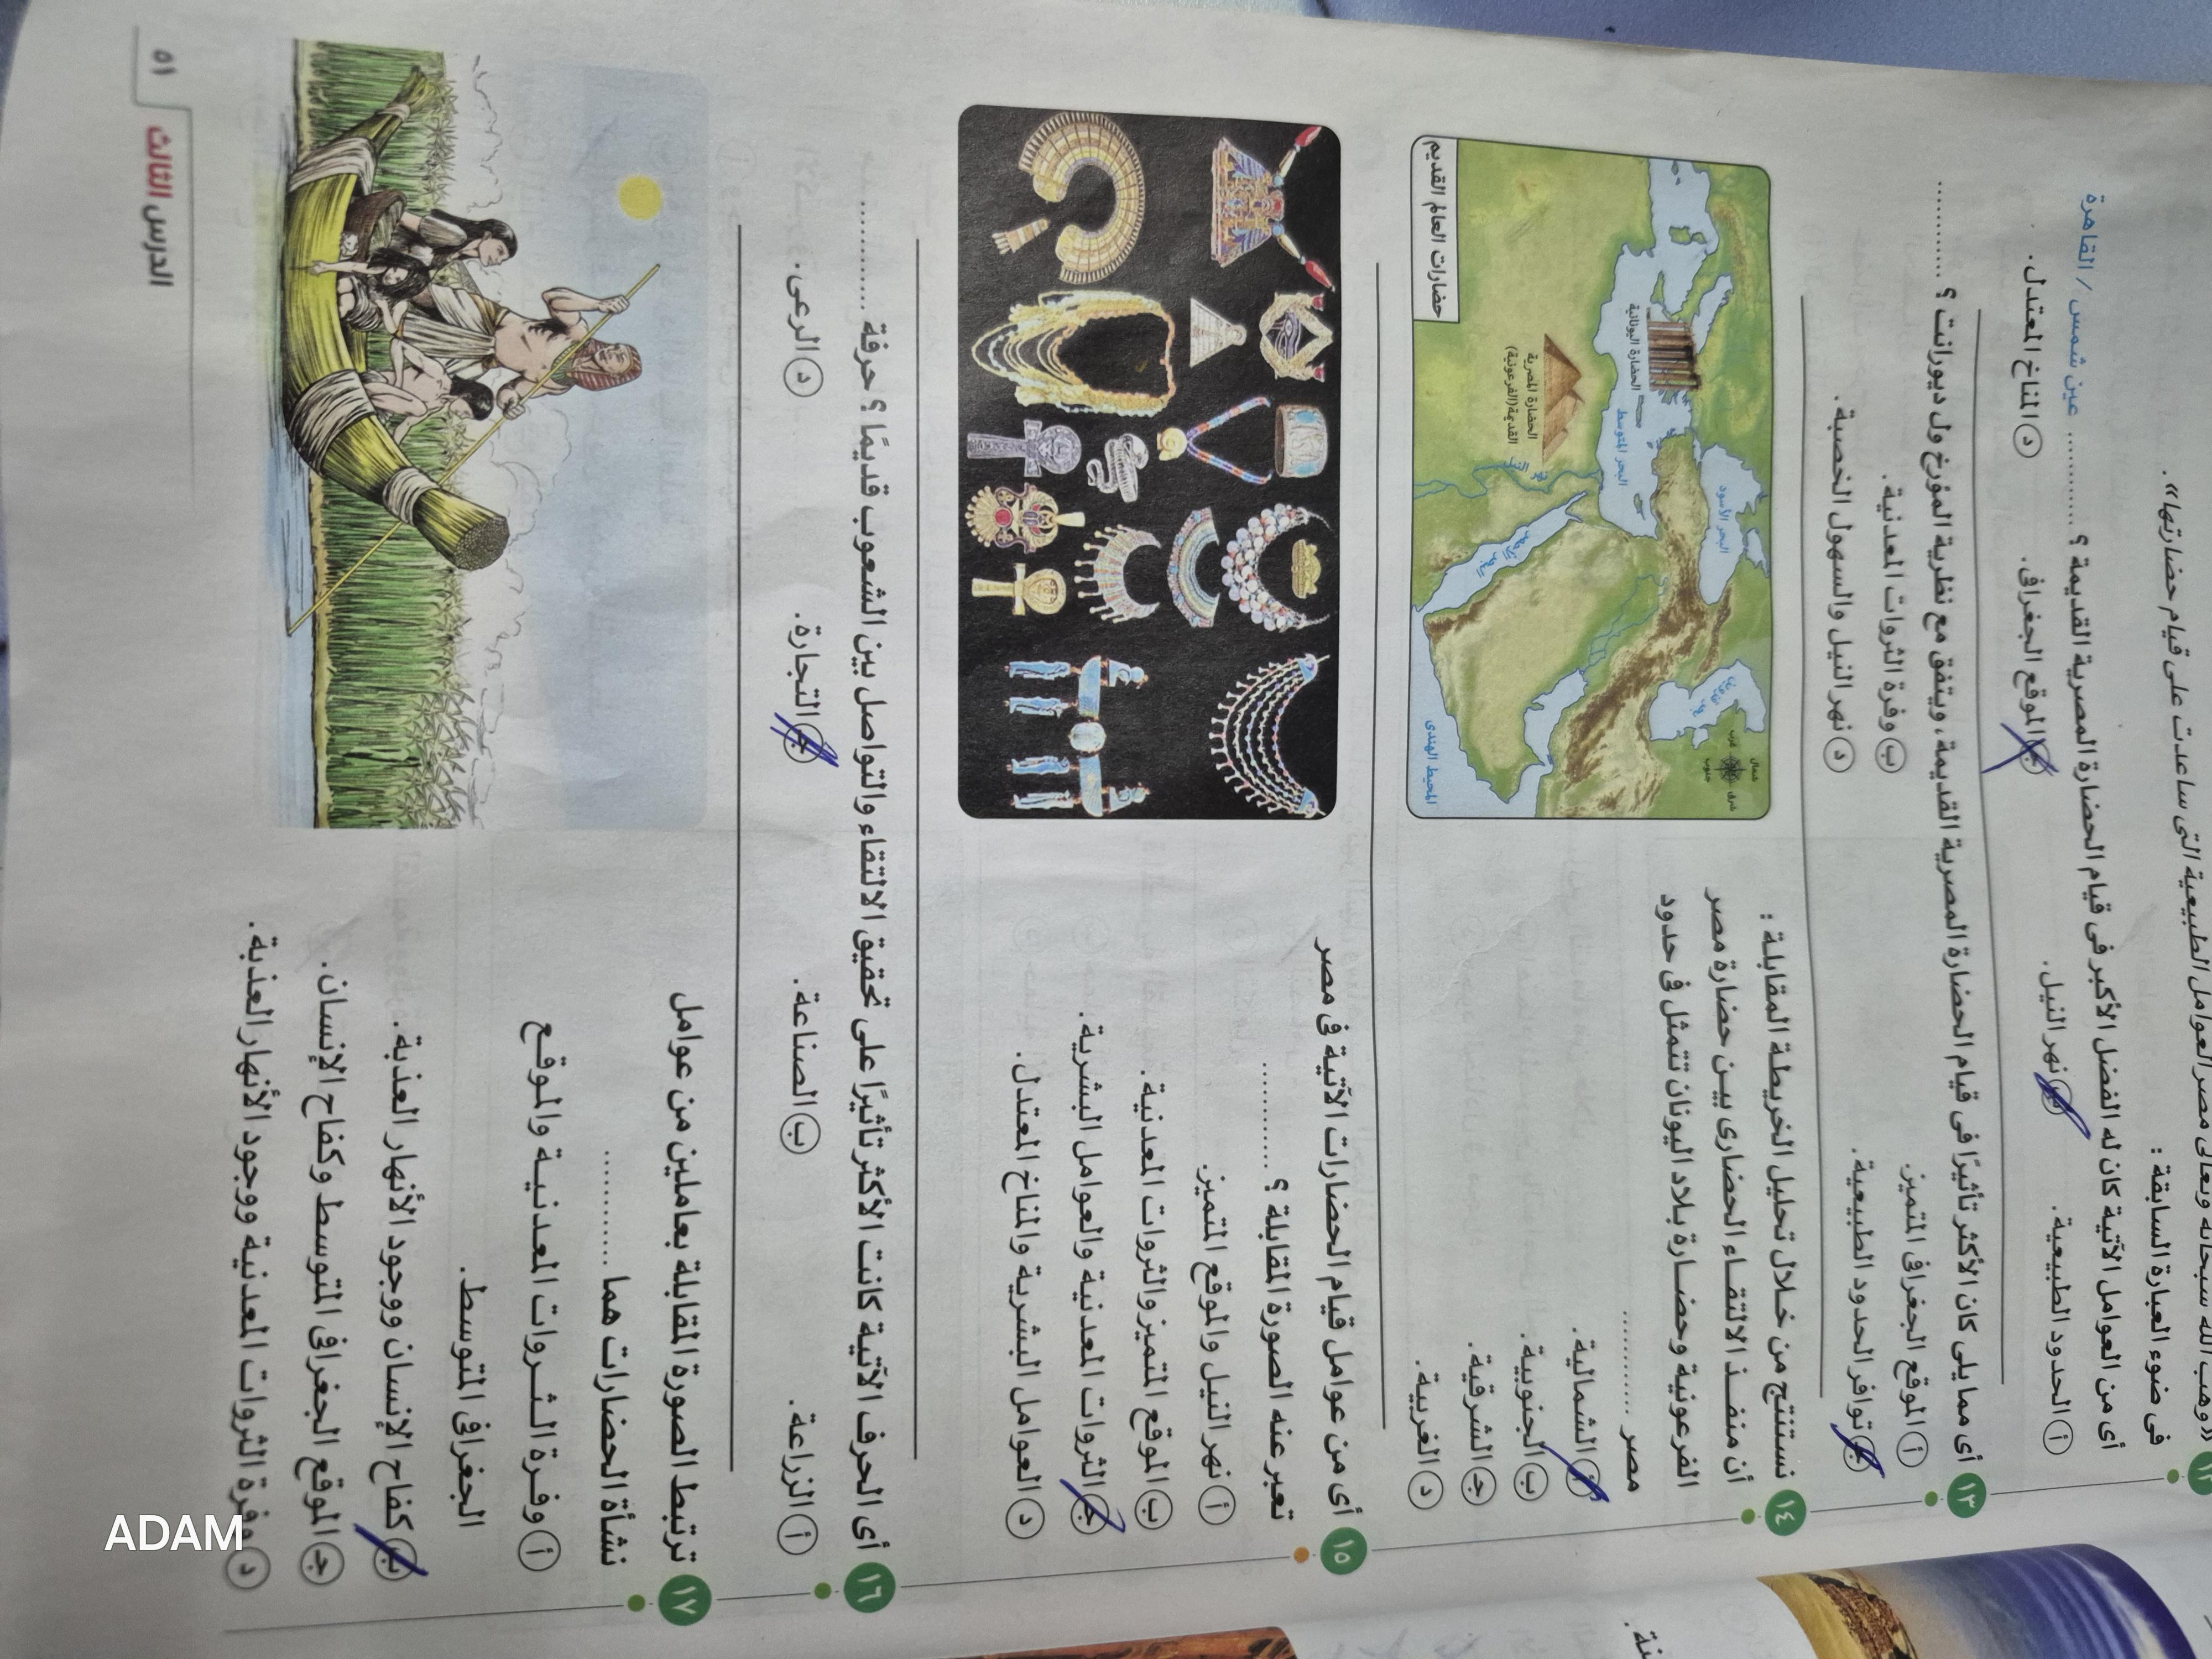 «وهب الله سبحانه وتعالى مصر العوامل الطبيعية التى ساعدت على قيام حضارتها».
فى ضوء العبارة السابقة :
أى من العوامل الآتية كان له الفضل الأكبر فى قيام الحضارة المصرية القديمة ؟ ............ عين شمس / القاهرة
أ الحدود الطبيعية. ب نهر النيل. جـ الموقع الجغرافى. د المناخ المعتدل.
١٣ أى مما يلى كان الأكثر تأثيرًا فى قيام الحضارة المصرية القديمة، ويتفق مع نظرية المؤرخ ول ديورانت ؟ ............
أ الموقع الجغرافى المتميز. ب وفرة الثروات المعدنية.
جـ توافر الحدود الطبيعية. د نهر النيل والسهول الخصبة.
١٤ نستنتج من خلال تحليل الخريطة المقابلة :
أن منفذ الالتقاء الحضارى بين حضارة مصر
الفرعونية وحضارة بلاد اليونان تتمثل فى حدود
مصر ............
أ الشمالية.
ب الجنوبية.
جـ الشرقية.
د الغربية.
شمال
شرق
غرب
جنوب
البحر الأسود
بحر قزوين
الحضارة اليونانية
البحر المتوسط
الحضارة المصرية
القديمة (الفرعونية)
نهر النيل
البحر الأحمر
المحيط الهندى
حضارات العالم القديم
١٥ أى من عوامل قيام الحضارات الآتية فى مصر
تعبر عنه الصورة المقابلة ؟ ............
أ نهر النيل والموقع المتميز.
ب الموقع المتميز والثروات المعدنية.
جـ الثروات المعدنية والعوامل البشرية.
د العوامل البشرية والمناخ المعتدل.
١٦ أى الحرف الآتية كانت الأكثر تأثيرًا على تحقيق الالتقاء والتواصل بين الشعوب قديمًا ؟ حرفة ............
أ الزراعة. ب الصناعة. جـ التجارة. د الرعى.
١٧ ترتبط الصورة المقابلة بعاملين من عوامل
نشأة الحضارات هما ............
أ وفرة الثروات المعدنية والموقع
الجغرافى المتوسط.
ب كفاح الإنسان ووجود الأنهار العذبة.
جـ الموقع الجغرافى المتوسط وكفاح الإنسان.
د وفرة الثروات المعدنية ووجود الأنهار العذبة.
٥١ الدرس الثالث
ADAM